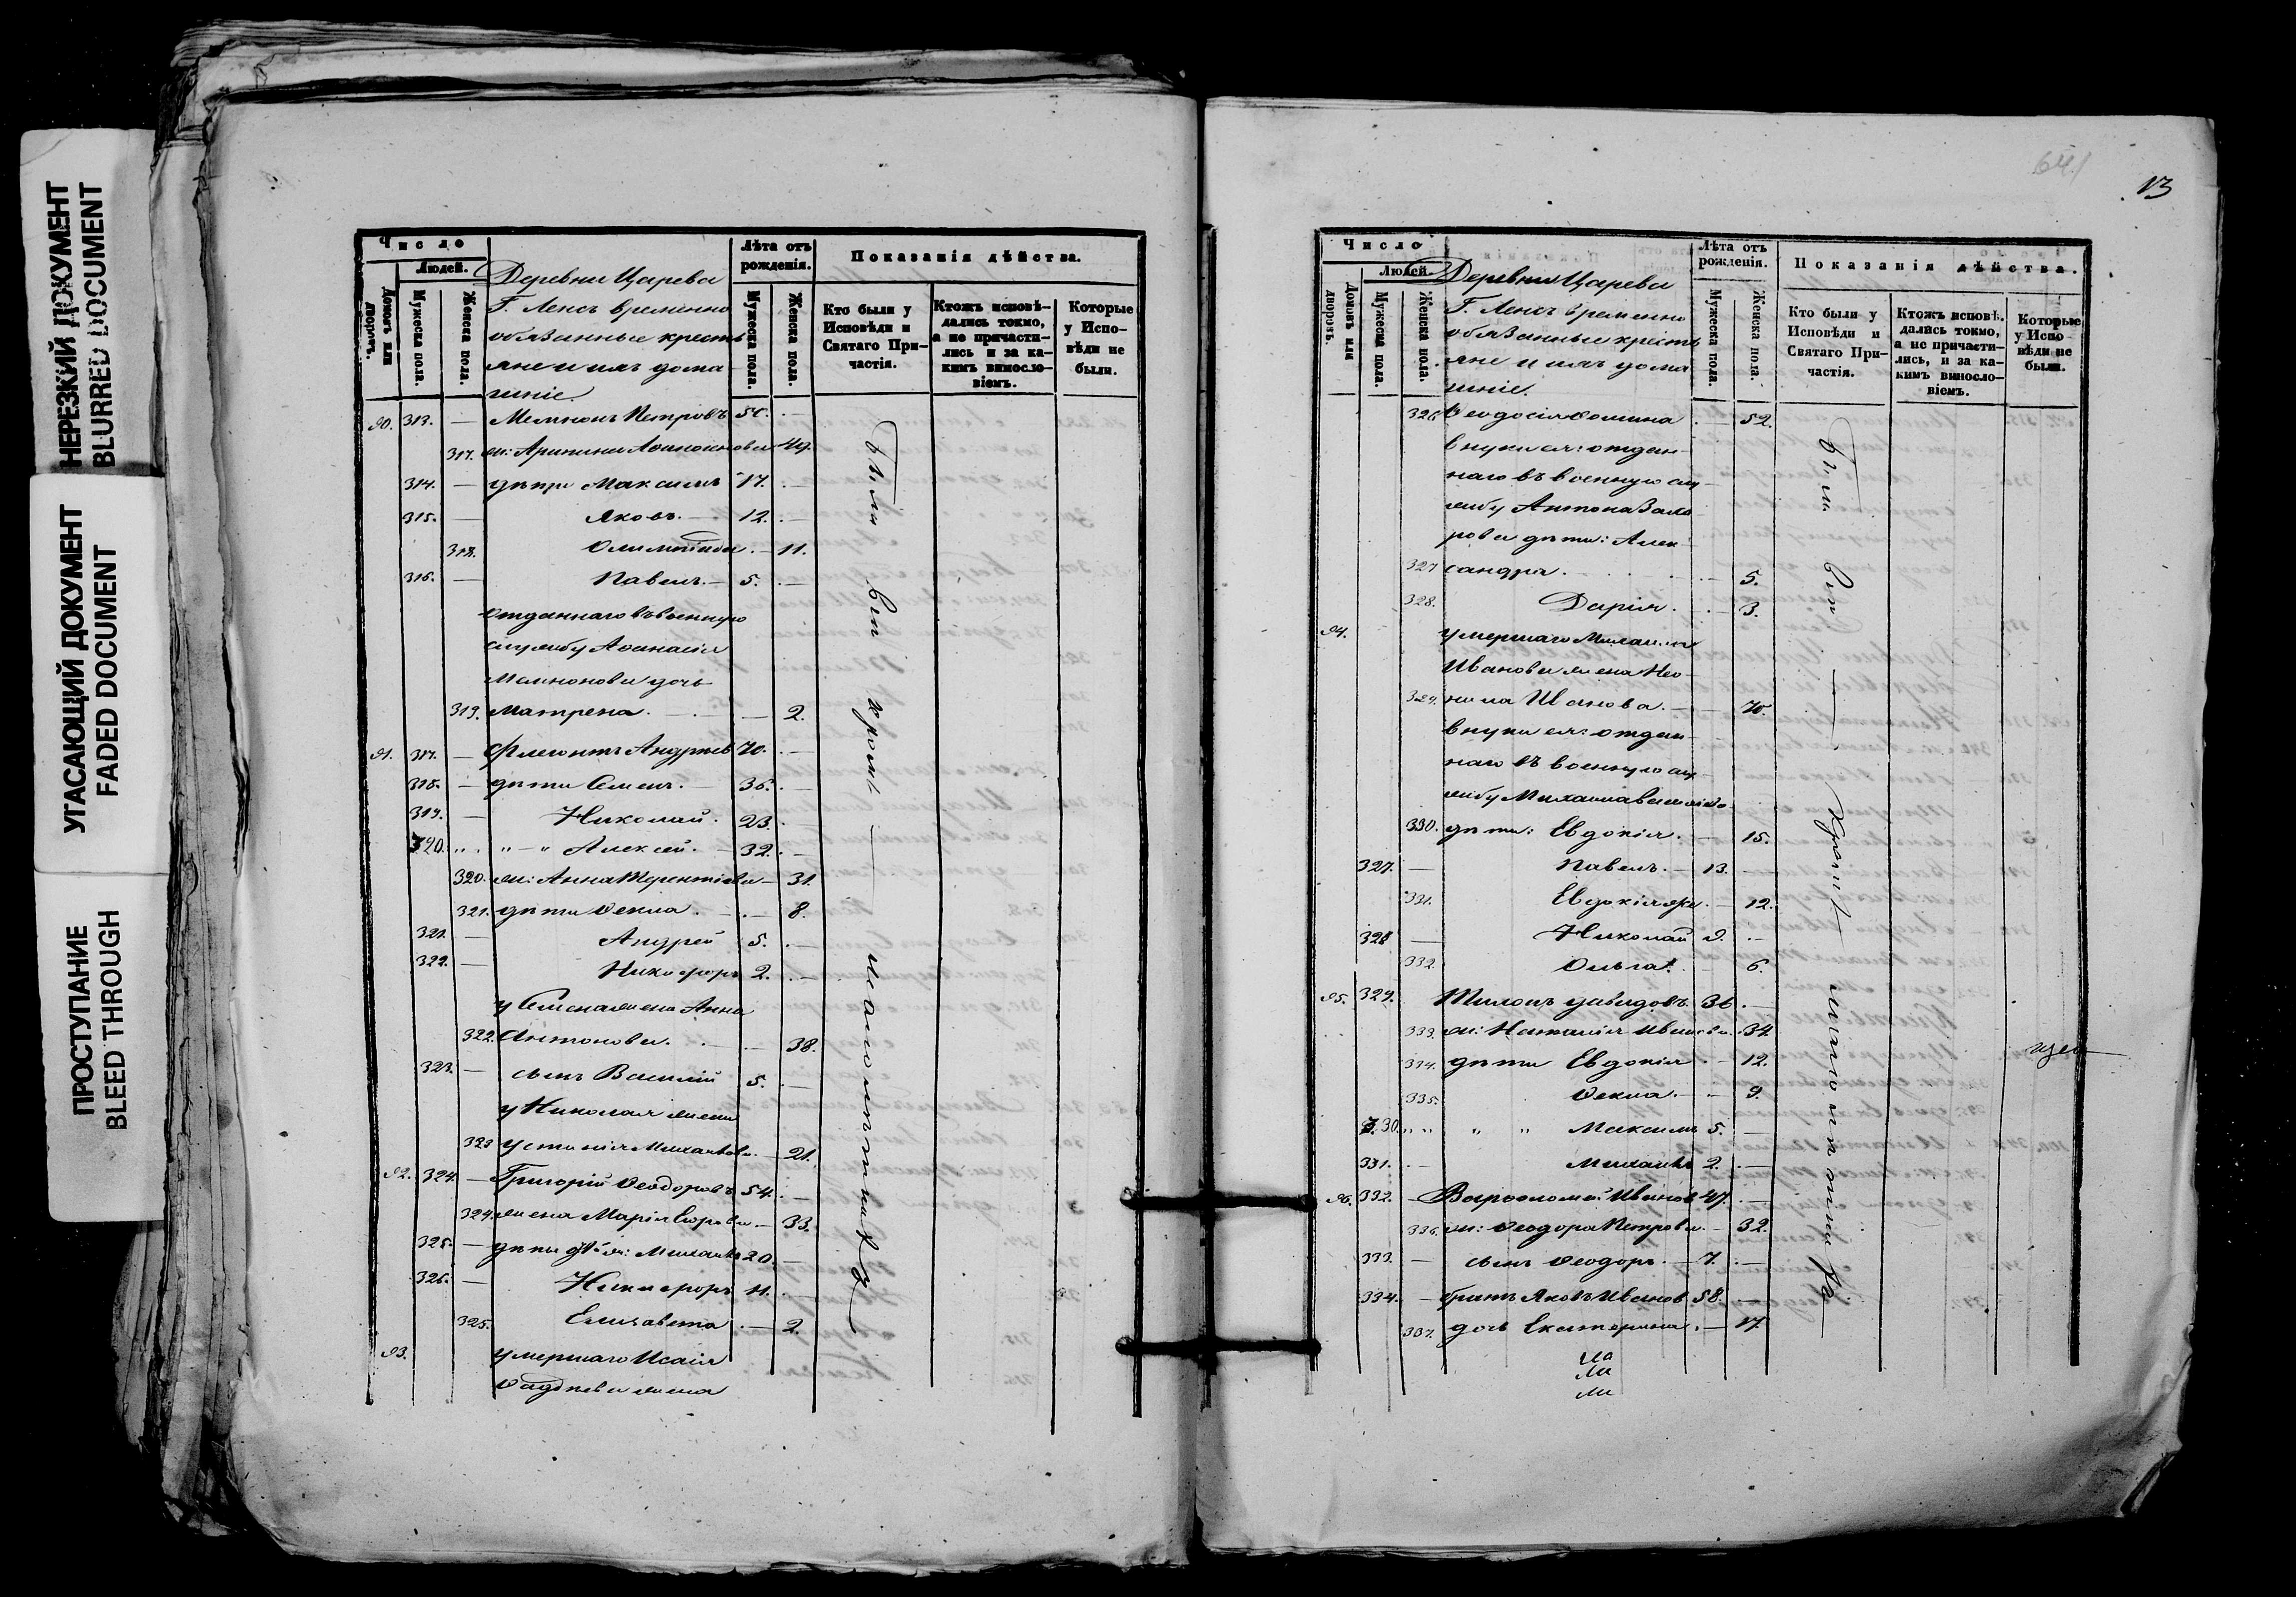 НЕРЕЗКИЙ ДОКУМЕНТ
BLURRED DOCUMENT
УГАСАЮЩИЙ ДОКУМЕНТ
FADED DOCUMENT
ПРОСТУПАНИЕ
BLEED THROUGH
Число
Людей.
Домовъ или дворовъ.
Мужеска пола.
Женска пола.
Деревни Царева
Г. Ленсъ временно
обязанные кресть
яне и ихъ дома
шніе.
Лѣта отъ рожденія.
Мужеска пола.
Женска пола.
Показанія дѣйства.
Кто были у Исповѣди и Святаго При-
частія.
Ктожъ исповѣ-
дались токмо,
а не причасти-
лись и за ка-
кимъ виносло-
віемъ.
Которые
у Испо-
вѣди не
были.
90. 313. — Мемнонъ Петровъ 50. —
317. ж: Арипина Афанасьева 49.
314. — дѣти Максимъ 17. —
315. — Яковъ. 12. —
318. Олимпіада — 11.
316. — Павелъ. 5. —
Отданнаго въ военную
службу Аѳанасія
Мемнонова дочь
319. Матрена. — 2.
91. 317. — Флегонтъ Андреевъ 70. —
318. — дѣти Семенъ. 36. —
319. — Николай. 23.
320. „ „ „ — „ Алексѣй. 32. —
320. ж: Анна Терентіева — 31.
321. дѣти Ѳекла. — 8.
321. — Андрей 5. —
322. — Никифоръ 2. —
у Семена жена Анна
322. Антонова. — 38.
323. — сынъ Василій 5. —
у Николая жена
323 Устинія Михайлова. — 21.
92. 324. — Григорій Ѳеодоровъ 54. —
324. жена Марія Егорова — 33.
325. — дѣти ж: Михаилъ 20. —
326. — Никифоръ 11. —
325. Елизавета — 2.
93. умершаго Исаія
Ѳадѣева жена
Были вси кромѣ — малолѣтныхъ
641
13
Число
Людей.
Домовъ или дворовъ.
Мужеска пола.
Женска пола.
Деревни Царева
Г. Ленсъ временно
обязанные кресть
яне и ихъ дома
шніе.
Лѣта отъ рожденія.
Мужеска пола.
Женска пола.
Показанія дѣйства.
Кто были у
Исповѣди и
Святаго При-
частія.
Ктожъ исповѣ-
дались токмо,
а не причасти-
лись, и за ка-
кимъ виносло-
віемъ.
Которые
у Испо-
вѣди не
были.
326 Ѳеодосія Ѳомина — 52.
внуки ея: отдан-
наго въ военную слу-
жбу Антона Заха
рова дѣти: Алек-
327 сандра. — 5.
328. Дарія. — 3.
94. умершаго Михаила
Иванова жена Нео-
329. нила Иванова. — 70.
внуки ея: отдан-
наго въ военную слу-
жбу Михаила
330. дѣти: Евдокія. — 15.
327. — Павелъ. 13.
331. Евдокія же — 12.
328 — Николай 9. —
332. Ольга. — 6.
95. 329. Тихонъ Давидовъ 36 —
333. ж: Наталія Иванова. 34
334. дѣти Евдокія — 12.
335. Ѳекла. — 9.
330. „ „ „ „ Максимъ 5. —
331. — Михаилъ 2. —
96. 332. — Варѳоломей Иванов 47. —
336. ж: Ѳеодора Петрова. — 32.
333. — сынъ Ѳеодоръ. 7. —
334. — братъ Яковъ Иванов 58. —
337. дочь Екатерина. — 17.
Были вси — кромѣ — малолѣтныхъ